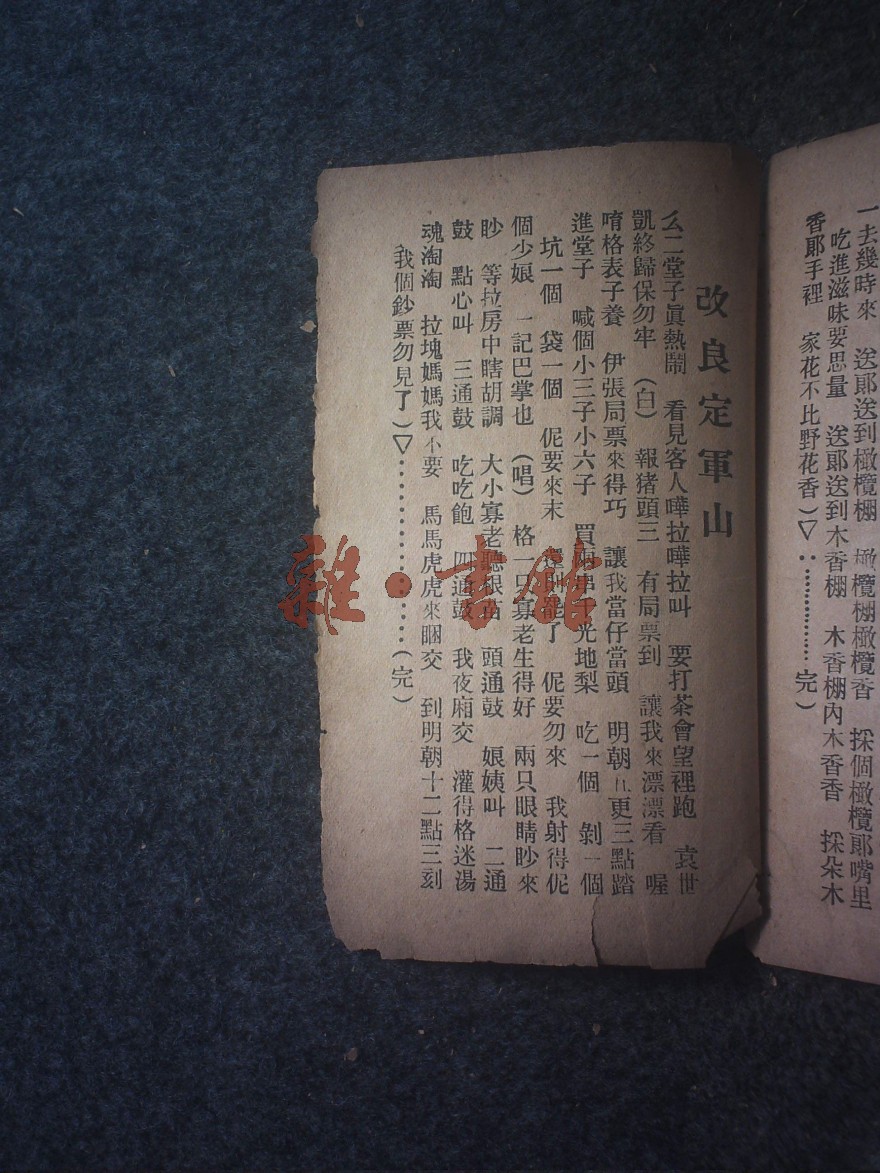 一去幾時來　送郎送到橄欖棚　橄欖棚橄欖香　採個橄欖郎嘴里
吃進滋味要思量　送郎送到木香棚　木香棚內木香香　採朵木
香郎手裡　家花不比野花香)▽:…………完)
改良定軍山
么二堂子眞熱鬧　看見客人嘩拉嘩拉叫　要打茶會望裡跑　袁世
凱終歸保勿牢　(白)　報猪頭三　有局票到　讓我來漂漂看　喔
唷格表子養　伊張局票來得巧　讓我當仔當頭　明朝五更三點踏
進堂子　喊個小三子小六子　買兩串光地梨　吃一個　剝一個
坑一個　袋一個　伲要來末　罷了　伲要勿來　我射得伲
個少娘　一記巴掌也　(唱)　格一只寡老生得好　兩只眼睛眇來
眇　等拉房中瞎胡調　大小寡老聽　頭通鼓　娘姨叫　二通
鼓　點心叫　三通鼓　吃吃飽　四通鼓　我夜廂交　灌得格迷湯
魂淘淘　拉塊媽媽我不要　馬馬虎虎來睏交　到明朝十二點三刻
我個鈔票勿見了)▽:………………(完)
雜·書館